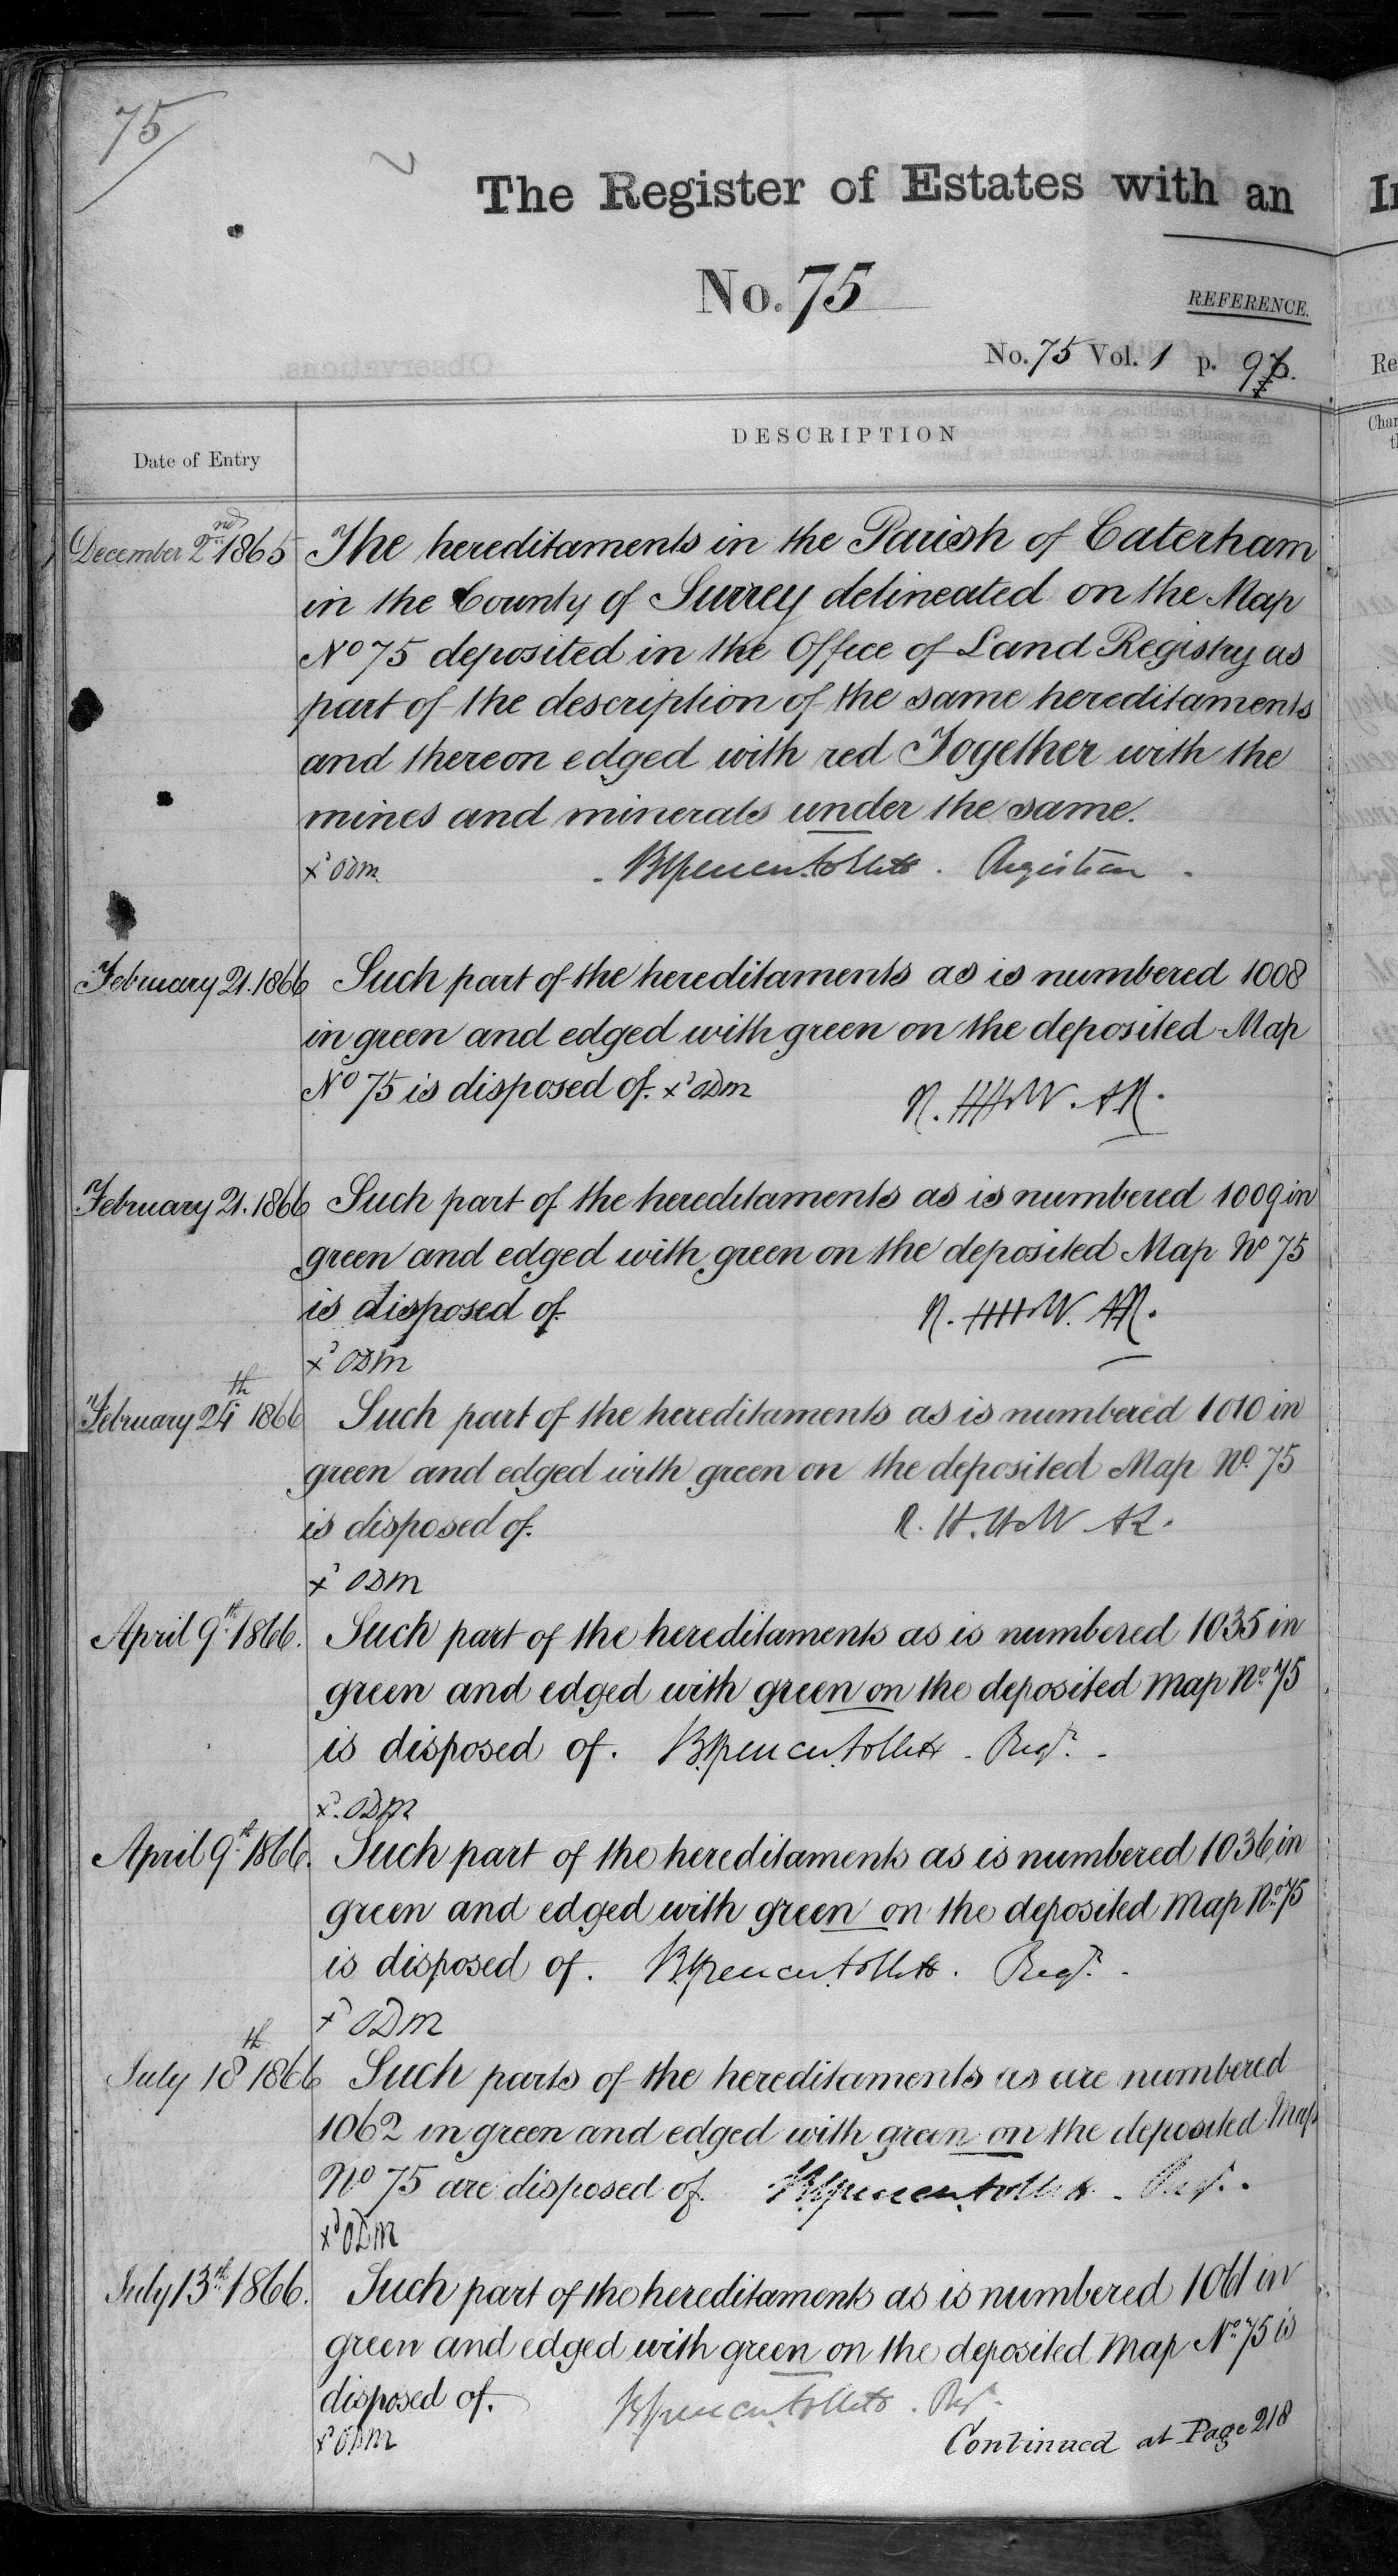 75
The Register of Estates with an
No. 75
REFERENCE.
No. 75 Vol. 1 p.
Date of Entry
DESCRIPTION
December 2nd 1865 The hereditaments in the Parish of Caterham
in the County of Surrey delineated on the Map
No 75 deposited in the Office of Land Registry as
part of the description of the same hereditaments
and thereon edged with red Together with the
mines and minerals under the same.
xd ODM Brent Spencer Follett. Registrar.
February 21. 1866 Such part of the hereditaments as is numbered 1008
in green and edged with green on the deposited Map
No 75 is disposed of. xd ODM
R. H. H. W. AR.
February 21. 1866 Such part of the hereditaments as is numbered 1009 in
green and edged with green on the deposited Map No 75
is disposed of. R. H. H. W. AR.
xd ODM
February 24th 1866 Such part of the hereditaments as is numbered 1010 in
green and edged with green on the deposited Map No. 75
is disposed of. R. H. H. W AR.
xd ODM
April 9th 1866. Such part of the hereditaments as is numbered 1035 in
green and edged with green on the deposited Map No. 75
is disposed of. B. Spencer Follett. Regr.
xd. ODM
April 9th 1866. Such part of the hereditaments as is numbered 1036 in
green and edged with green on the deposited Map No. 75
is disposed of. B. Spencer Follett. Regr.
xd ODM
July 18th 1866 Such parts of the hereditaments as are numbered
1062 in green and edged with green on the deposited Map
No 75 are disposed of. B. Spencer Follett. Regr.
xd ODM
July 13th 1866. Such part of the hereditaments as is numbered 1061 in
green and edged with green on the deposited Map No. 75 is
disposed of. B. Spencer Follett. Regr.
xd ODM
Continued at Page 218